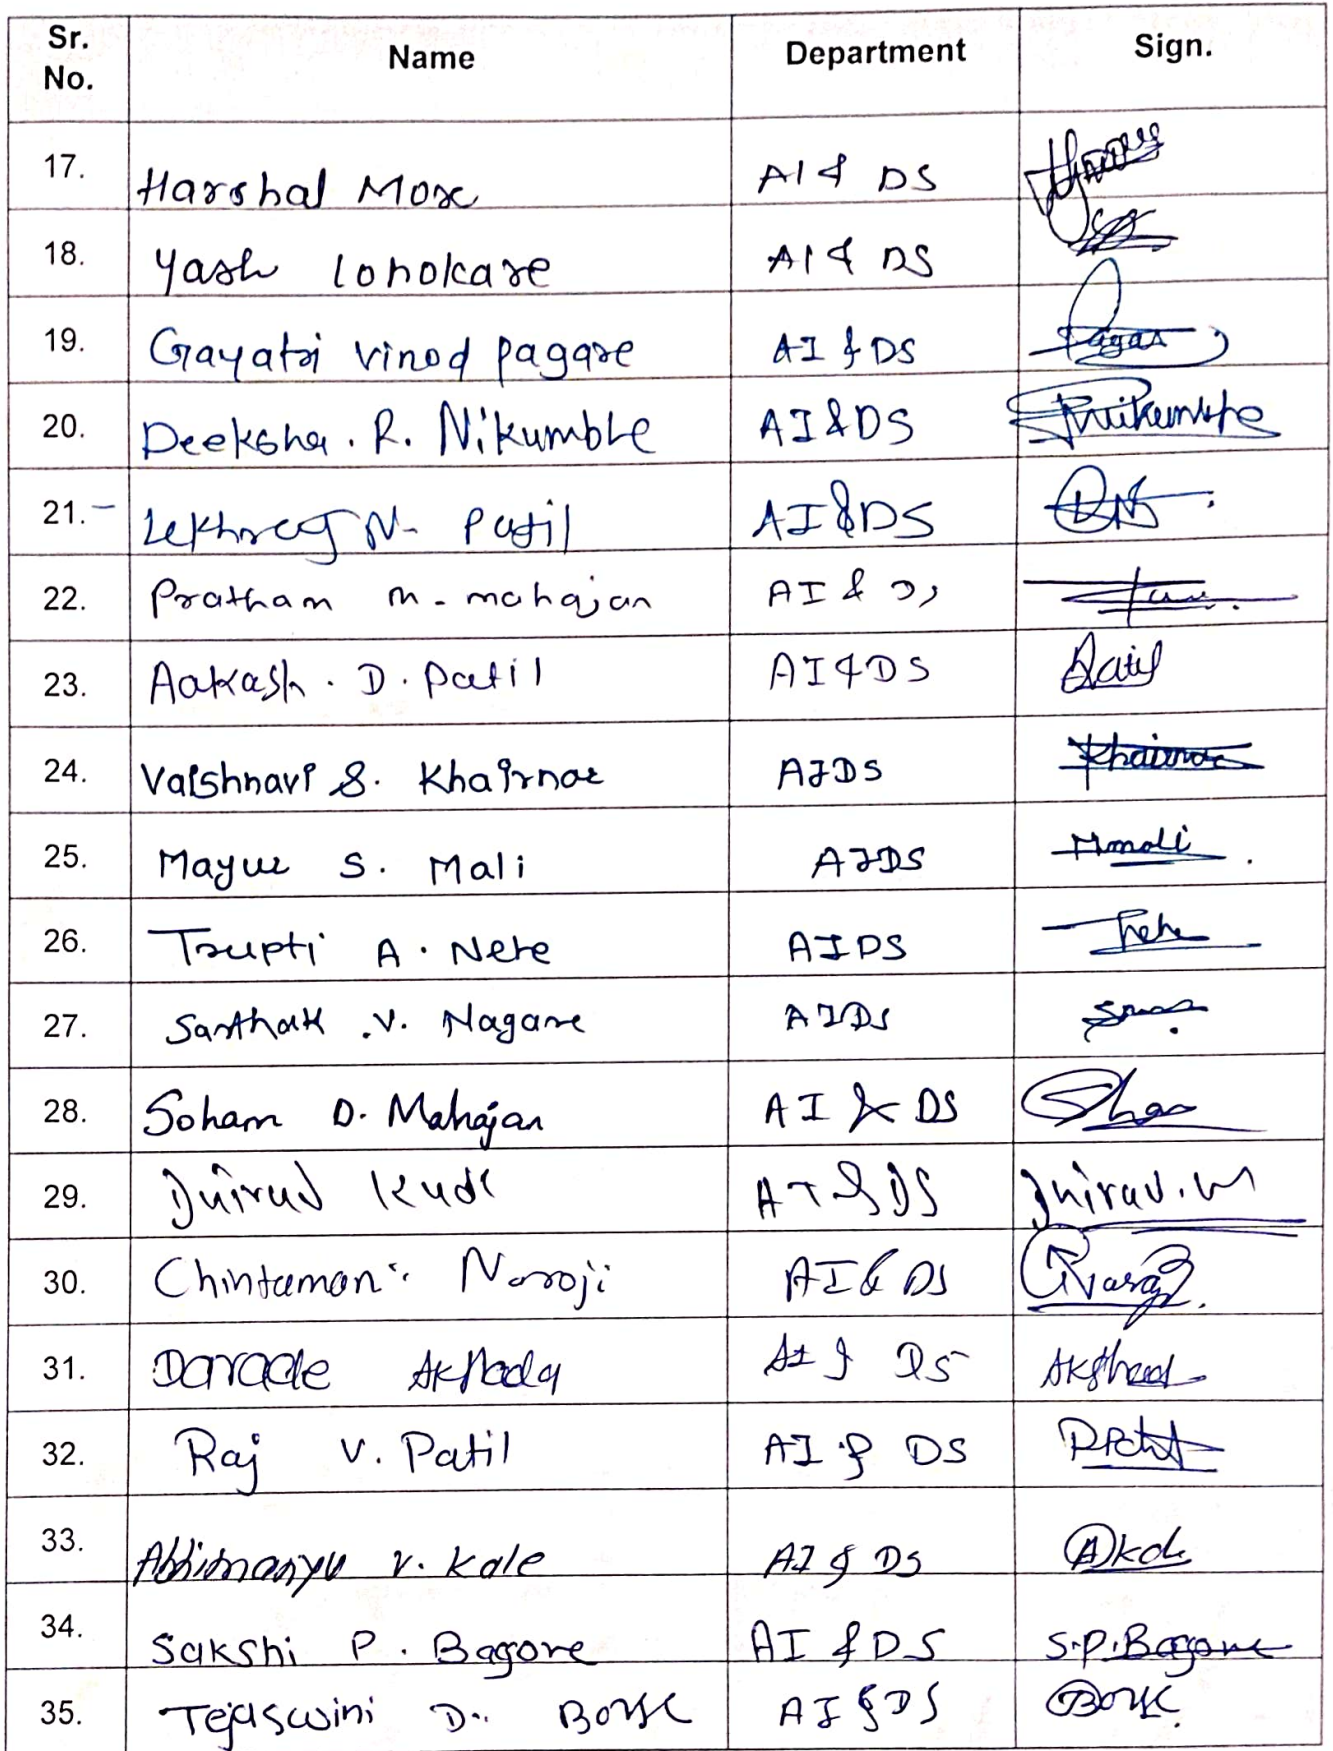 Sr. No. Name Department Sign.
17. Harshal More AI & DS
18. Yash lonokare AI & DS
19. Gayatri vinod pagare AI & DS Pagar
20. Deeksha. R. Nikumbhe AI & DS Nikumbhe
21. Lekhraj N. Patil AI & DS
22. Pratham m. mahajan AI & DS
23. Aakash. D. Patil AI & DS Patil
24. Vaishnavi S. Khairnar AIDS Khairnar
25. Mayur S. Mali AIDS Mmali
26. Trupti A. Nere AIDS
27. Sarthak .V. Nagare AIDS
28. Soham D. Mahajan AI & DS
29. AI & DS
30. Chintamani Naroji AI & DS
31. Darade AI & DS
32. Raj V. Patil AI & DS
33. Abhimanyu V. Kale AI & DS
34. Sakshi P. Bagore AI & DS S.P.Bagore
35. Tejaswini D. Borse AI & DS Borse